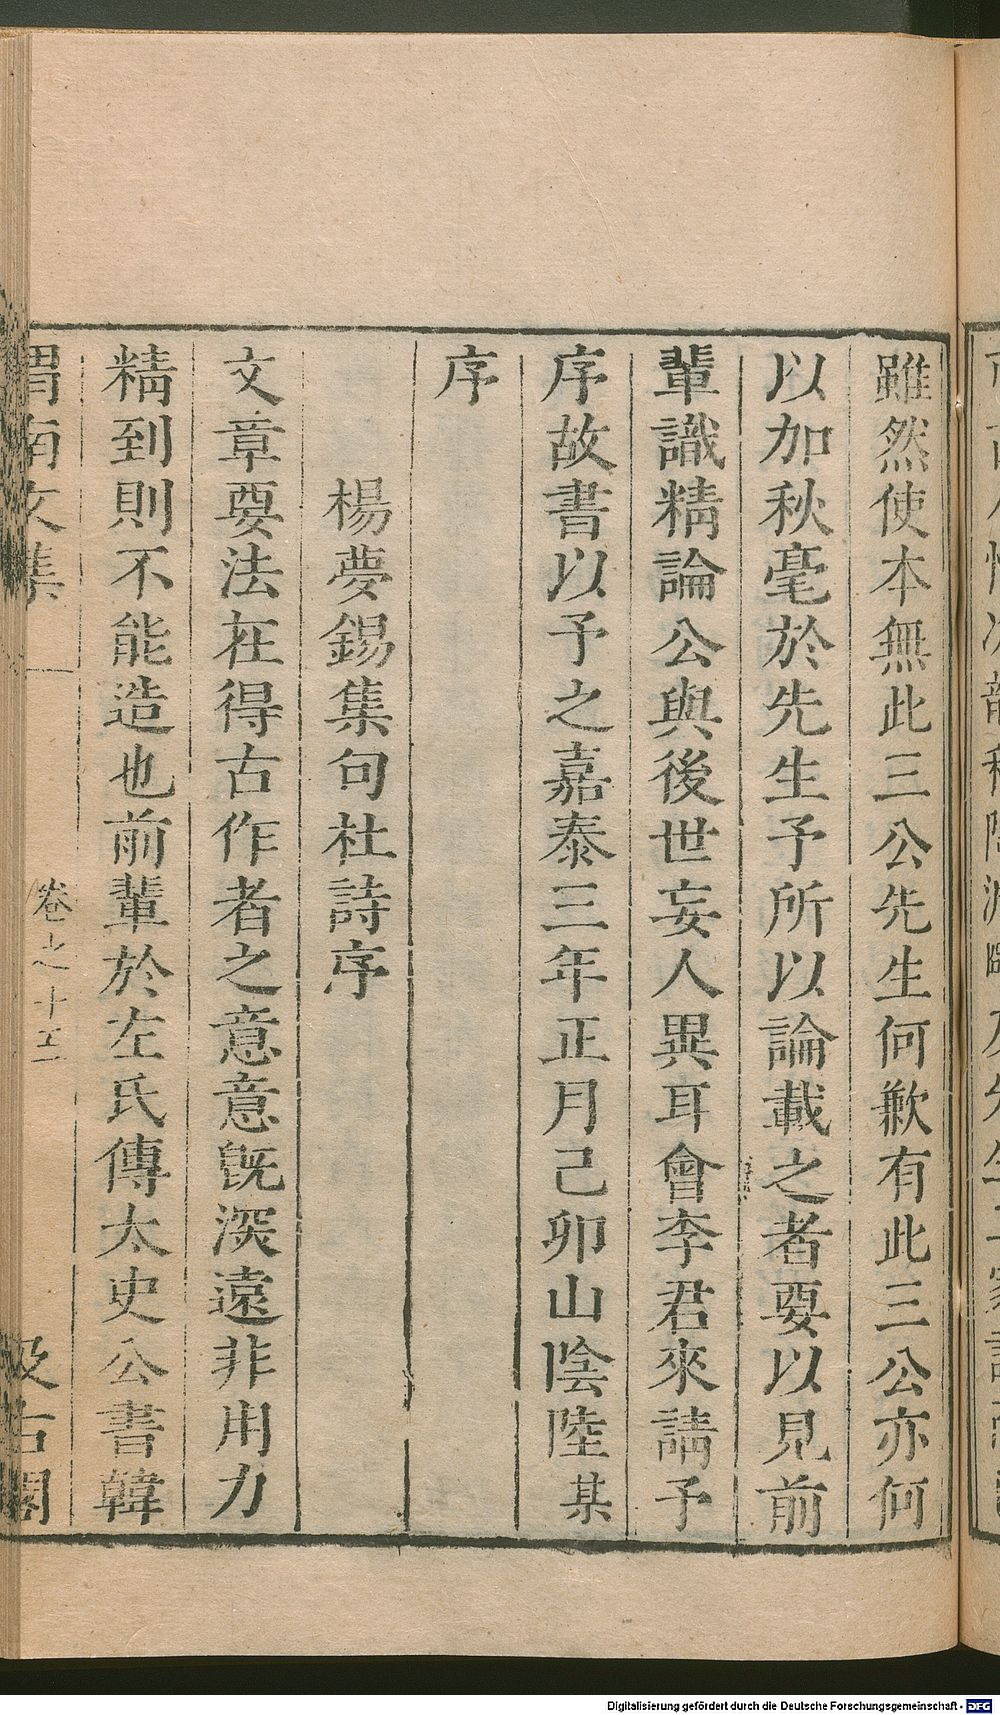 雖然使本無此三公先生何歉有此三公亦何
以加秋毫於先生予所以論載之者要以見前
輩識精論公與後世妄人異耳會李君來請予
序故書以予之嘉泰三年正月己卯山陰陸某
序
楊夢錫集句杜詩序
文章要法在得古作者之意意旣深遠非用力
精到則不能造也前輩於左氏傳太史公書韓
渭南文集
卷之十五
汲古閣
Digitalisierung gefördert durch die Deutsche Forschungsgemeinschaft - DFG